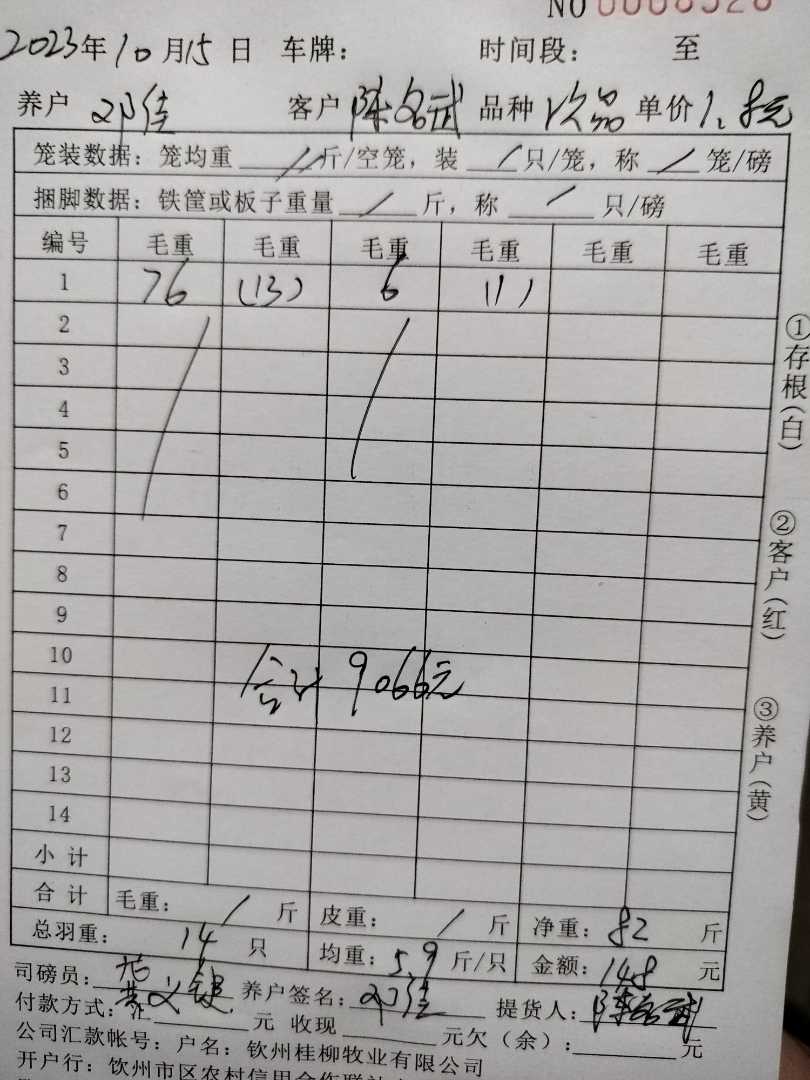 NO 0008528
2023年10月15日 车牌: 时间段: 至
养户 邓佳 客户 陈名武 品种 次品 单价 1.8元
笼装数据: 笼均重 / 斤/空笼, 装 / 只/笼, 称 / 笼/磅
捆脚数据: 铁筐或板子重量 / 斤, 称 / 只/磅
编号 毛重 毛重 毛重 毛重 毛重 毛重
1 76 (13) 6 (1)
2
3
4
5
6
7
8
9
10
11
合计 9066元
12
13
14
小计
合计 毛重: / 斤 皮重: / 斤 净重: 82 斤
总羽重: 14 只 均重: 5.9 斤/只 金额: 148 元
司磅员: 养户签名: 邓佳 提货人: 陈名武
付款方式: 汇 元 收现 元欠(余): 元
公司汇款帐号: 户名: 钦州桂柳牧业有限公司
开户行: 钦州市区农村信用合作联社
①存根(白)
②客户(红)
③养户(黄)